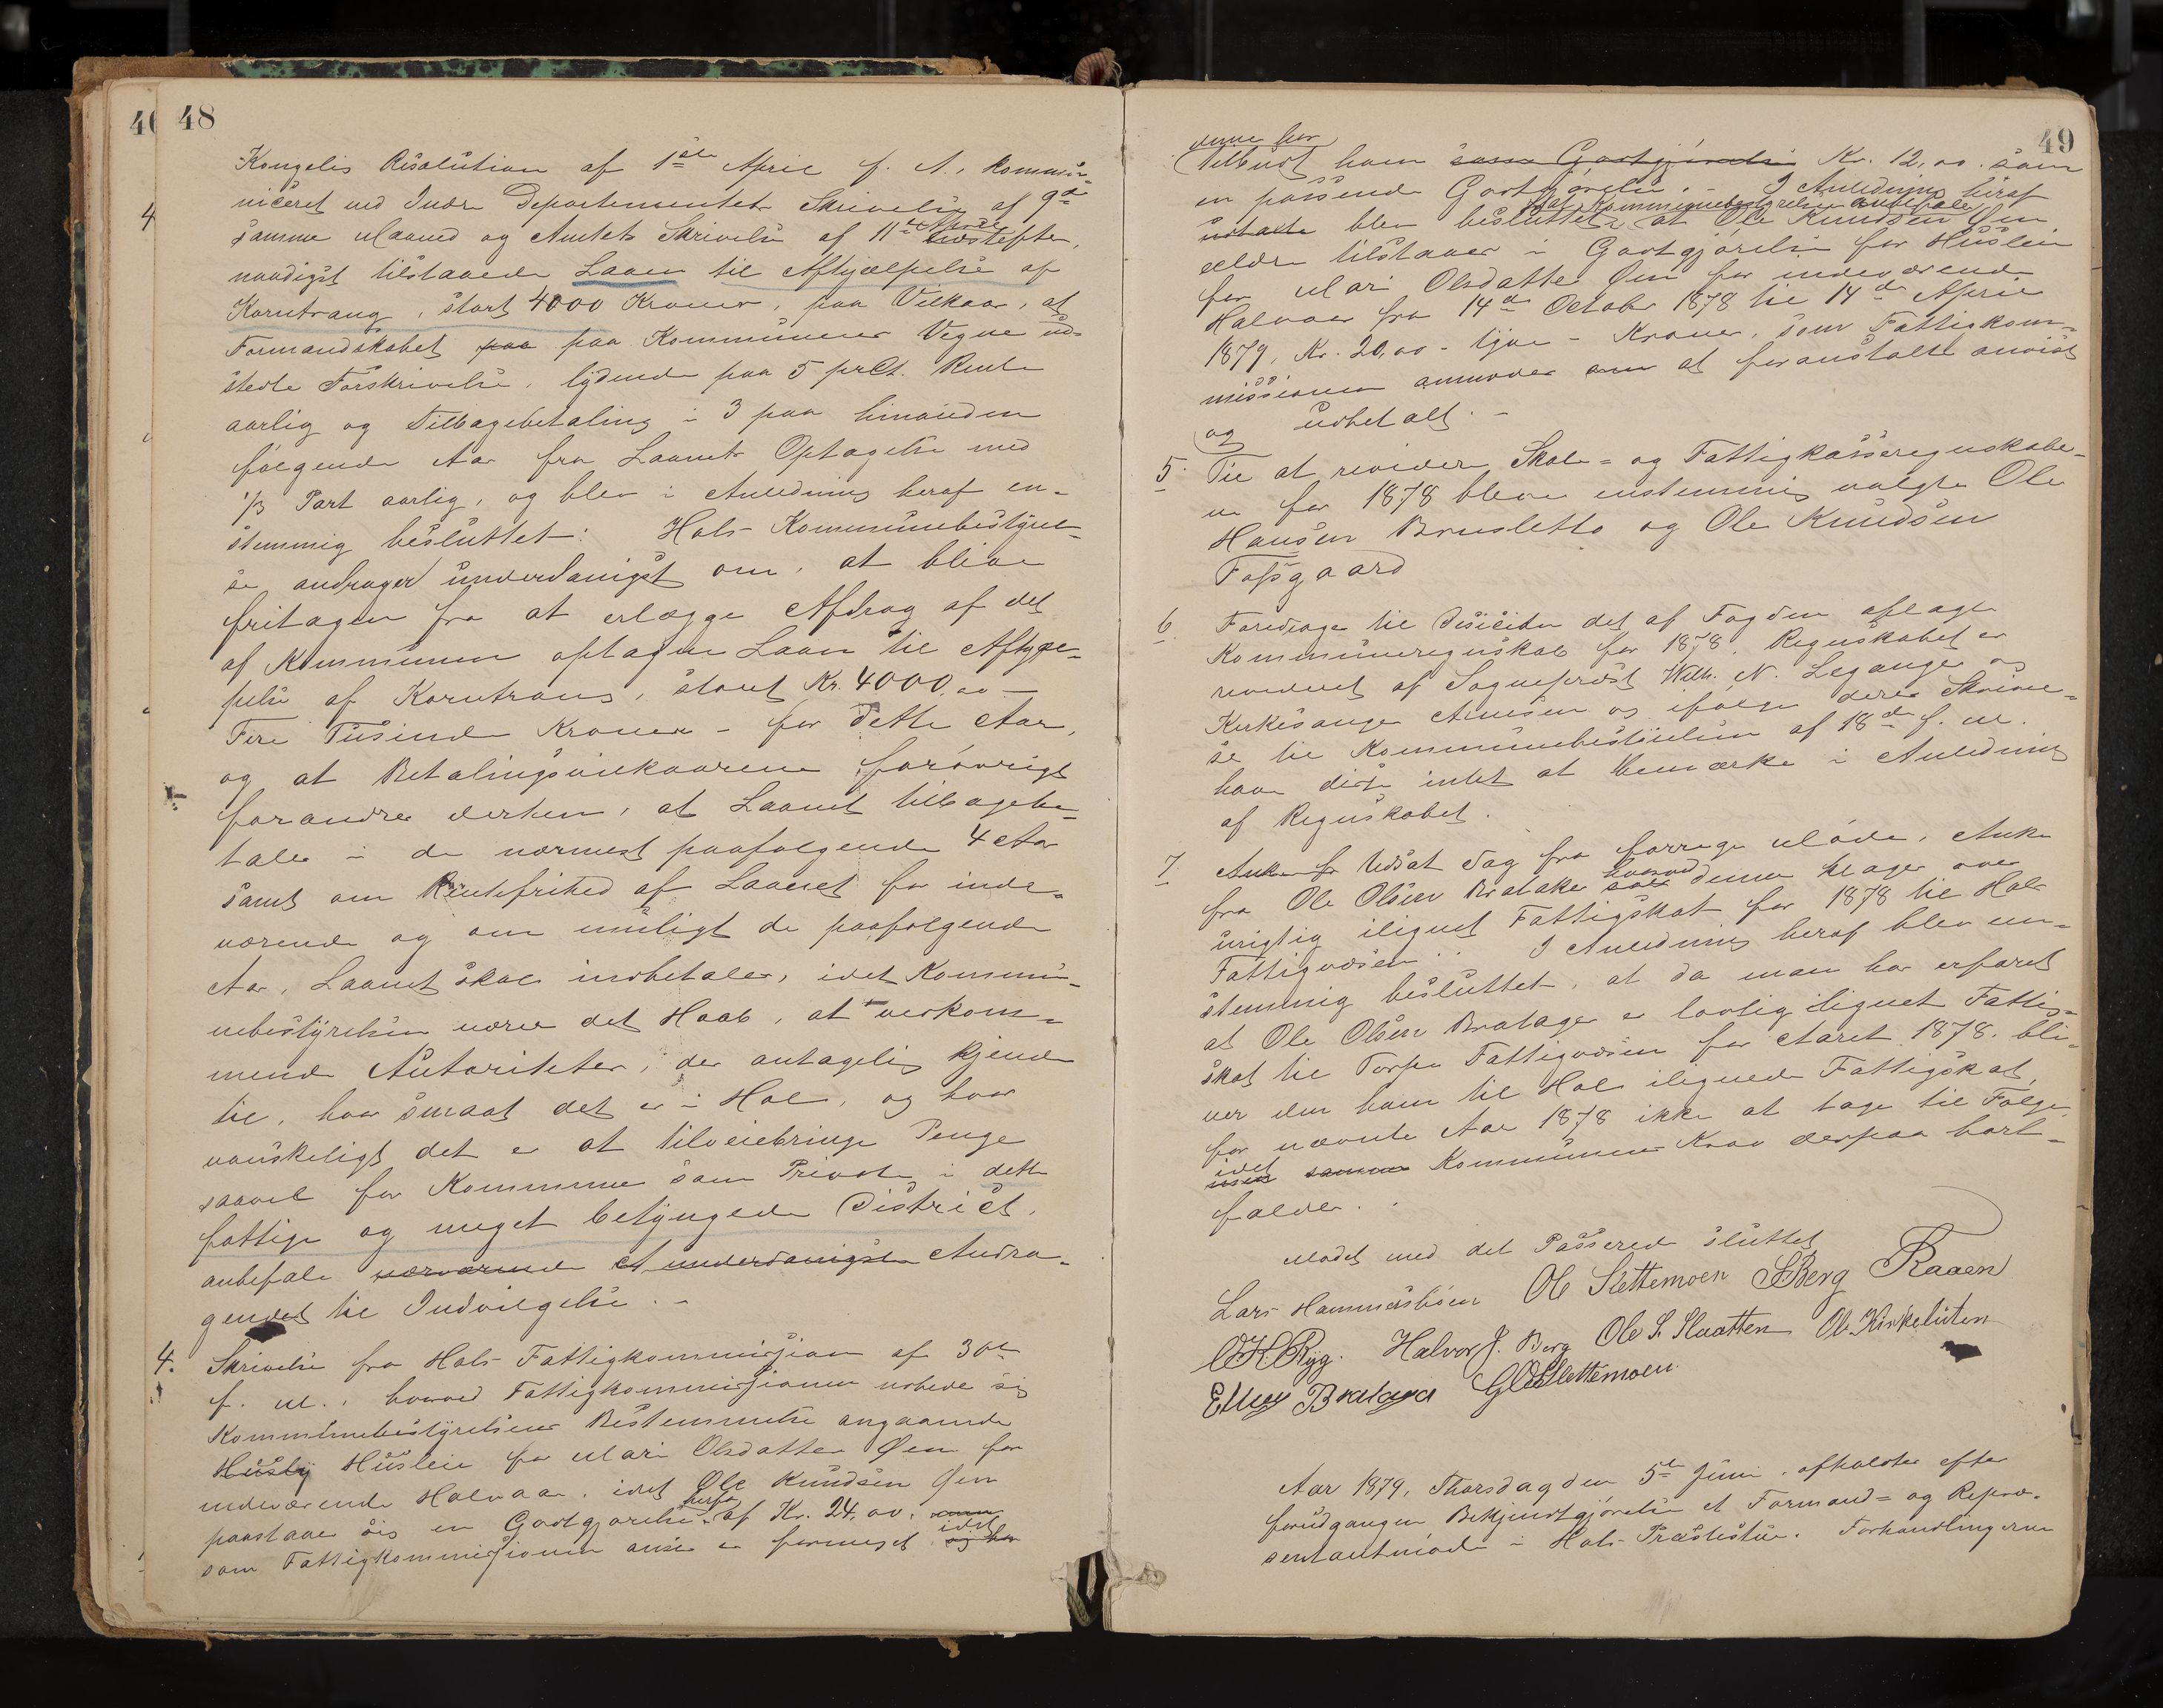 48
Kongelig Resolution af 1ste April f. A., kommu-
niceret ved Indre Departementets Skrivelse af 9de
samme Maaned og Amtets Skrivelse af 11te næstefter,
naadigst tilstaaede Laan til Afhjælpelse af
Korntrang, stort 4000 Kroner, paa Vilkaar, at
Formandskabet paa paa Kommunens Vegne ud-
stedte Forskrivelse, lydende paa 5 prCt. Rente
aarlig og Tilbagebetaling i 3 paa hinanden
følgende Aar fra Laanets Optagelse med
1/3 Part aarlig, og blev i Anledning heraf en-
stemmig besluttet: Hols Kommunebestyrel-
se andrager underdanigst om, at blive
fritagen fra at erlægge Afdrag af det
af Kommunen optagne Laan til Afhjæl-
pelse af Korntrang, stort Kr. 4000,00 -
Fire Tusinde Kroner - for dette Aar,
og at Betalingsvilkaarene forøvrigt
forandres derhen, at Laanet tilbagebe-
tales i de nærmest paafølgende 4 Aar
samt om Rentefrihed af Laanet for inde-
værende og om muligt de paafølgende
Aar, Laanet skal indbetales, idet Kommu-
nebestyrelsen nærer det Haab, at vedkom-
mende Autoriteter, der antagelig kjende
til, hvor smaat det er i Hol, og hvor
vanskeligt det er at tilveiebringe Penge
saavel for Kommune som Private i dette
fattige og meget betyngede District,
anbefale nærværende et underdanigste Andra-
gendet til Indvilgelse. -
4. Skrivelse fra Hols Fattigkommission af 30te
f. M., hvorved Fattigkommissionen udbede sig
Kommunebestyrelsens Bestemmelse angaaende
Husly Husleie for Mari Olsdatter Øen for
indeværende Halvaar, idet Ole Knudsen Øen
paastaar sig en Godtgjørelse herfor af Kr. 24,00,
som Fattigkommissionen anser er formeget idet og har
49
denne har
tilbudt ham som Godtgjørelse Kr. 12,00 som
en passende Godtgjørelse. - I Anledning heraf
blev besluttet, at Kommunebestyrelsen anbefaler at Ole Knudsen Øen
ældre tilstaaes i Godtgjørelse for Husleie
for Mari Olsdatter Øen for indeværende
Halvaar fra 14de October 1878 til 14de April
1879, Kr. 20,00 - tyve - Kroner, som Fattigkom-
missionen anmodes om at foranstalte anvist
og udbetalt. -
5. Til at revidere Skole- og Fattigkasseregnskabe-
ne for 1878 bleve enstemmig valgte Ole
Hansen Brusletto og Ole Knudsen
Fossgaard
6. Foredrages til Decision det af Fogden aflagte
Kommuneregnskab for 1878. Regnskabet er
revideret af Sogneprest Wilh. N. Legangen og
Kirkesanger Arnesen og ifølge deres Skrivel-
se til Kommunebestyrelsen af 18de f. M.
have disse intet at bemærke i Anledning
af Regnskabet.
7. Anke fr Udsat Sag fra forrige Møde, Anke
fra Ole Olsen Bratager hvorved denne klager over
urigtig ilignet Fattigskat for 1878 til Hols
Fattigvæsen. I Anledning heraf blev en-
stemmig besluttet, at da man har erfaret
at Ole Olsen Bratager er lovlig ilignet Fattig-
skat til Torpe Fattigvæsen for Aaret 1878, bli-
ver den ham til Hol ilignede Fattigskat
for nævnte Aar 1878 ikke at tage til Følge,
idet samme Kommunens Krav derpaa bort-
falder.
Mødet med det Passerede sluttet
Lars Hammersbøen Ole Slettemoen SBerg TRaaen
OHRyg. Halvor J. Berg Ole S. Slaatten Ole Kirkeluten
Elling Bratager GOSlettemoen
Aar 1879, Thorsdag den 5te Juni, afholdtes efter
forudgangen Bekjendtgjørelse et Formand- og Repræ-
sentantmøde i Hols Præstestue. Forhandlingerne